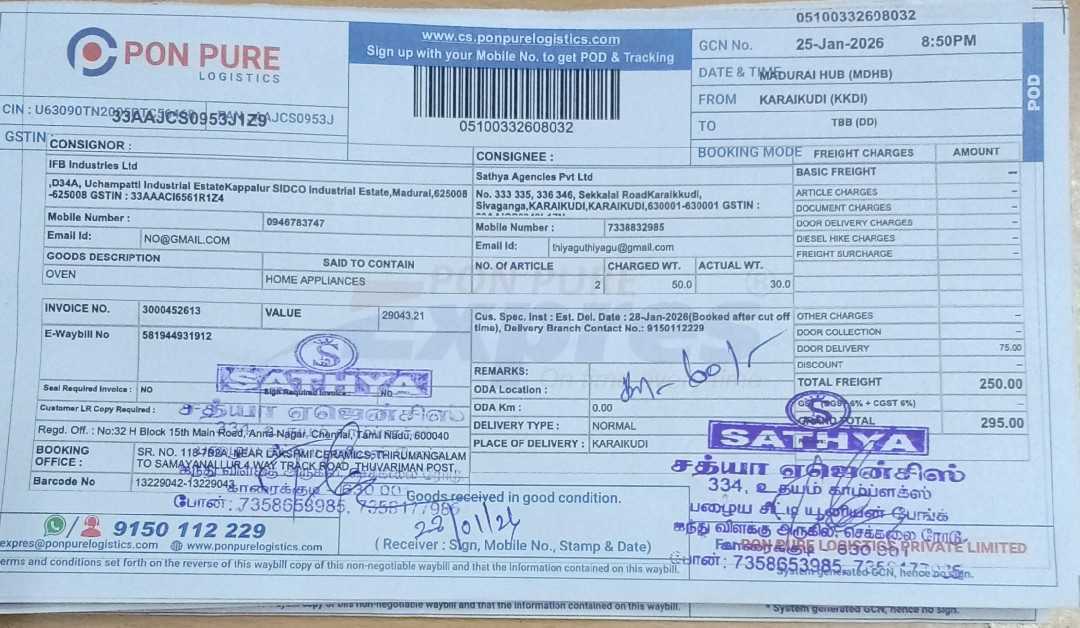 05100332608032
PON PURE
LOGISTICS
www.cs.ponpurelogistics.com
Sign up with your Mobile No. to get POD & Tracking
05100332608032
GCN No. 25-Jan-2026 8:50PM
DATE & TIME MADURAI HUB (MDHB)
FROM KARAIKUDI (KKDI)
TO TBB (DD)
BOOKING MODE FREIGHT CHARGES AMOUNT
POD
CIN : 33AAJCS0953J1Z9
GSTIN
CONSIGNOR :
IFB Industries Ltd
,D34A, Uchampatti Industrial EstateKappalur SIDCO Industrial Estate,Madurai,625008
-625008 GSTIN : 33AAACI6561R1Z4
Mobile Number : 0946783747
Email Id: NO@GMAIL.COM
GOODS DESCRIPTION SAID TO CONTAIN
OVEN HOME APPLIANCES
CONSIGNEE :
Sathya Agencies Pvt Ltd
No. 333 335, 336 346, Sekkalai RoadKaraikkudi,
Sivaganga,KARAIKUDI,KARAIKUDI,630001-630001 GSTIN :
Mobile Number : 7338832985
Email Id: thiyaguthiyagu@gmail.com
NO. Of ARTICLE CHARGED WT. ACTUAL WT.
2 50.0 30.0
BASIC FREIGHT –
ARTICLE CHARGES –
DOCUMENT CHARGES –
DOOR DELIVERY CHARGES –
DIESEL HIKE CHARGES –
FREIGHT SURCHARGE –
OTHER CHARGES –
DOOR COLLECTION –
DOOR DELIVERY 75.00
DISCOUNT –
TOTAL FREIGHT 250.00
6% + CGST 6%)
GRAND TOTAL 295.00
INVOICE NO. 3000452613 VALUE 29043.21
E-Waybill No 581944931912
Cus. Spec. Inst : Est. Del. Date : 28-Jan-2026(Booked after cut off
time), Delivery Branch Contact No.: 9150112229
REMARKS:
ODA Location :
ODA Km : 0.00
DELIVERY TYPE : NORMAL
PLACE OF DELIVERY : KARAIKUDI
Seal Required Invoice : NO Sign Required Invoice : NO
Customer LR Copy Required :
Regd. Off. : No:32 H Block 15th Main Road, Anna Nagar, Chennai, Tamil Nadu, 600040
BOOKING OFFICE : SR. NO. NEAR LAKSHMI CERAMICS, THIRUMANGALAM
TO SAMAYANALLUR 4 WAY TRACK ROAD, THUVARIMAN POST,
Barcode No 13229042-13229043
S
SATHYA
சத்யா ஏஜென்சிஸ்
காரைக்குடி
போன்: 7358653985, 7358177986
Goods received in good condition.
( Receiver : Sign, Mobile No., Stamp & Date)
S
SATHYA
சத்யா ஏஜென்சிஸ்
334, உதயம் காம்ப்ளக்ஸ்
பழைய சிட்டி யூனியன் பேங்க்
ஐந்து விளக்கு அருகில், செக்காலை ரோடு,
For PON PURE LOGISTICS PRIVATE LIMITED
போன்: 7358653985,
System generated GCN, hence no sign.
9150 112 229
expres@ponpurelogistics.com www.ponpurelogistics.com
erms and conditions set forth on the reverse of this waybill copy of this non-negotiable waybill and that the information contained on this waybill.
copy of this non-negotiable waybill and that the information contained on this waybill.
* System generated GCN, hence no sign.